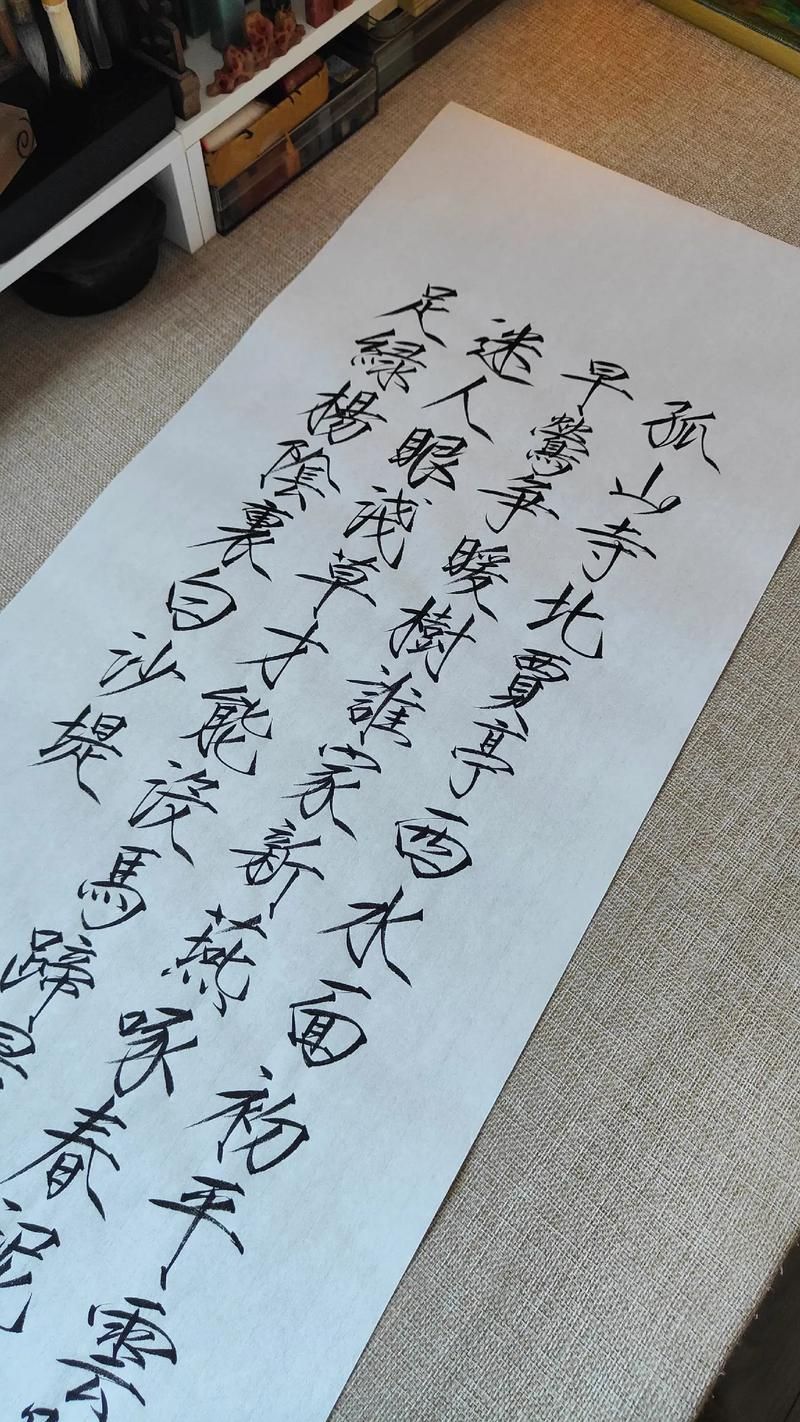 孤山寺北賈亭西水面初平雲
早鶯争暖樹誰家新燕啄春泥
迷人眼浅草才能没馬蹄
足緑楊陰裏白沙堤